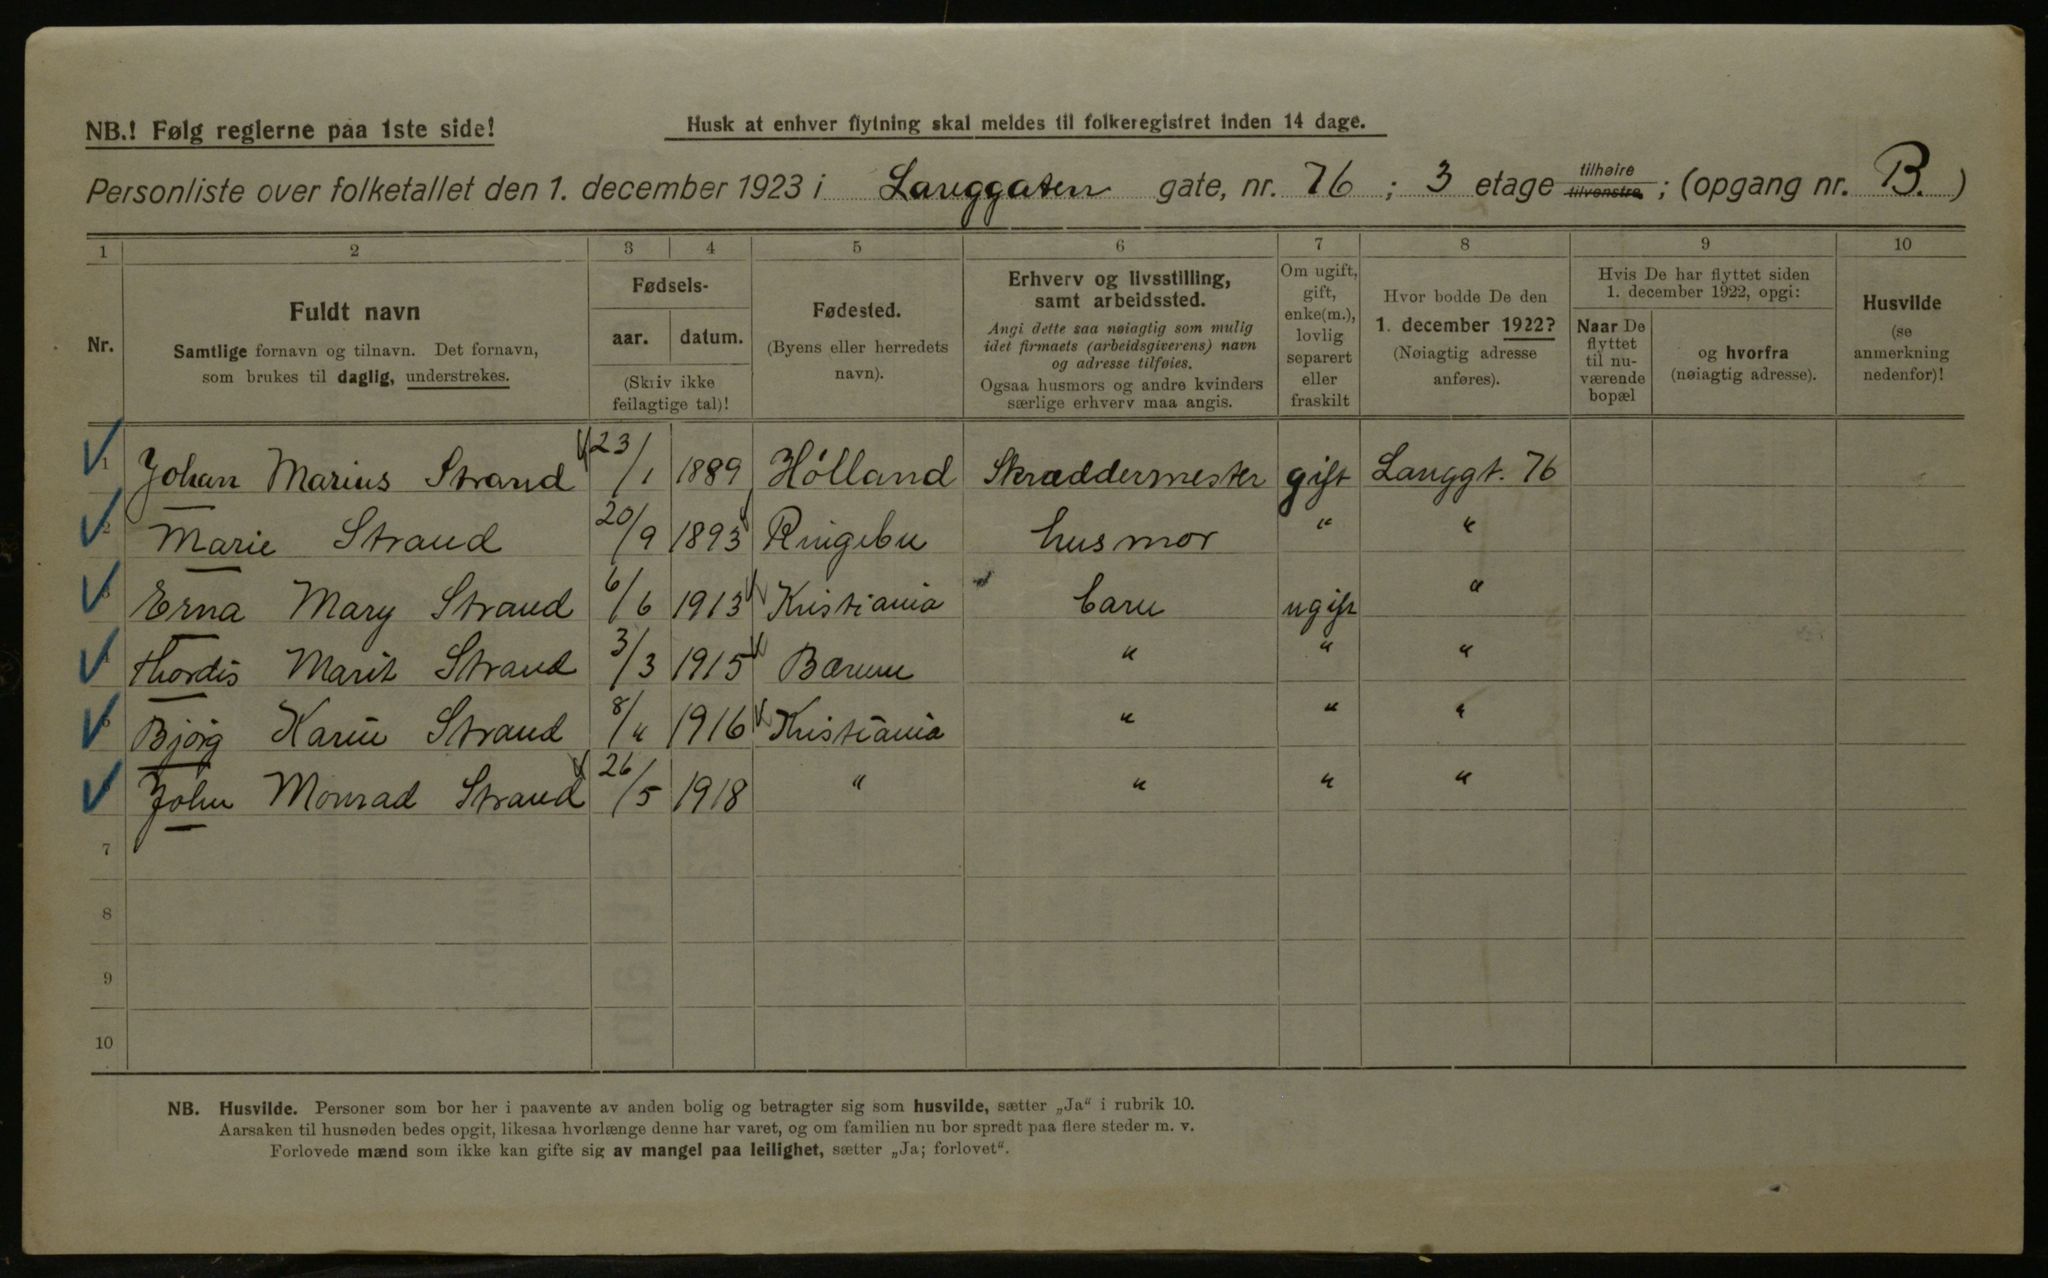 NB.! Følg reglerne paa 1ste side!
Husk at enhver flytning skal meldes til folkeregistret inden 14 dage.
Personliste over folketallet den 1. december 1923 i Langgaten gate, nr. 76 ; 3 etage tilhøire tilvenstre ; (opgang nr. B. )
1 2 3 4 5 6 7 8 9 10
Nr.
Fuldt navn
Samtlige fornavn og tilnavn. Det fornavn,
som brukes til daglig, understrekes.
Fødsels-
aar. datum.
(Skriv ikke
feilagtige tal)!
Fødested.
(Byens eller herredets
navn).
Erhverv og livsstilling,
samt arbeidssted.
Angi dette saa nøiagtig som mulig
idet firmaets (arbeidsgiverens) navn
og adresse tilføies.
Ogsaa husmors og andre kvinders
særlige erhverv maa angis.
Om ugift,
gift,
enke(m.),
lovlig
separert
eller
fraskilt
Hvor bodde De den
1. december 1922?
(Nøiagtig adresse
anføres).
Hvis De har flyttet siden
1. december 1922, opgi:
Naar De
flyttet
til nu-
værende
bopæl
og hvorfra
(nøiagtig adresse).
Husvilde
(se
anmerkning
nedenfor)!
1 Johan Marius Strand 23/1 1889 Hølland Skræddermester gift Langgt. 76
2 Marie Strand 20/9 1893 Ringebu husmor " "
3 Erna Mary Strand 6/6 1913 Kristiania barn ugift "
4 Thordis Marit Strand 3/3 1915 Bærum " " "
5 Bjørg Karin Strand 8/4 1916 Kristiania " " "
John Monrad Strand 26/5 1918 " " " "
7
8
9
10
NB. Husvilde. Personer som bor her i paavente av anden bolig og betragter sig som husvilde, sætter „Ja“ i rubrik 10.
Aarsaken til husnøden bedes opgit, likesaa hvorlænge denne har varet, og om familien nu bor spredt paa flere steder m. v.
Forlovede mænd som ikke kan gifte sig av mangel paa leilighet, sætter „Ja; forlovet“.